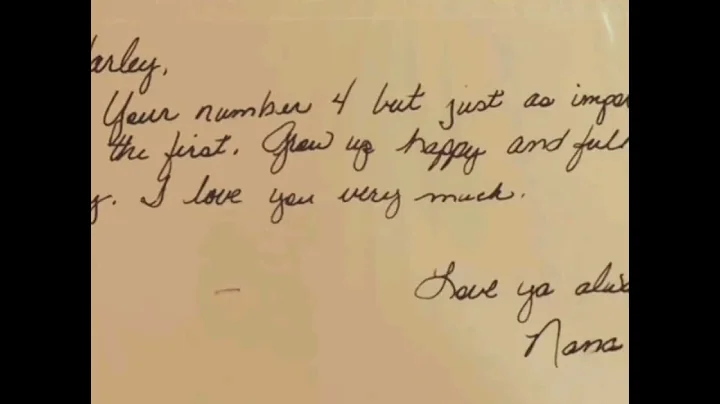 arley,
Your number 4 but just as impor
the first. Grow up happy and full
y. I love you very much.
Love ya alwa
Nana